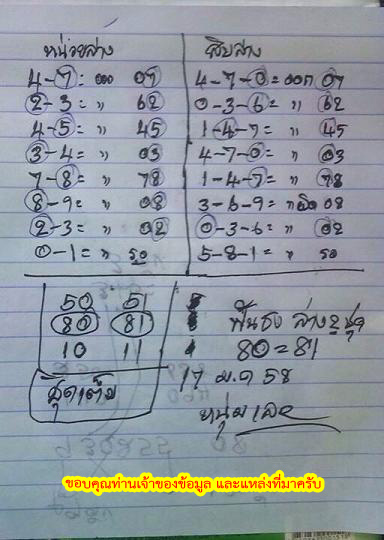 หน่วยล่าง
4-7= ออก 07
2-3= " 62
4-5= " 45
3-4= " 03
7-8= " 78
8-9= " 08
2-3= " 02
0-1= " 50
สิบล่าง
4-7-0= ออก 07
0-3-6= " 62
1-4-7= " 45
4-7-0= " 03
1-4-7= " 78
3-6-9= " ผิด 08
0-3-6= " 02
5-8-1= " 50
50 51
80 81
10 11
ชุดเต็ม
ฟันธง ล่าง 2 ชุด
80=81
17 ม.ค 58
หนุ่ม
ขอบคุณท่านเจ้าของข้อมูล และแหล่งที่มาครับ